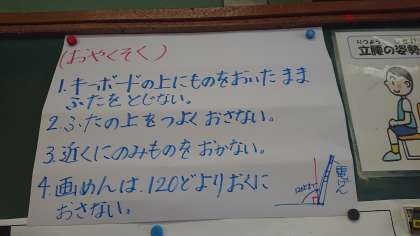 (おやくそく)
1.キーボードの上にものをおいたまま
ふたをとじない。
2.ふたの上をつよくおさない。
3.近くにのみものをおかない。
4.画めんは、120どよりおくに
おさない。
120どまで
りつよう しせい
立腰の姿勢